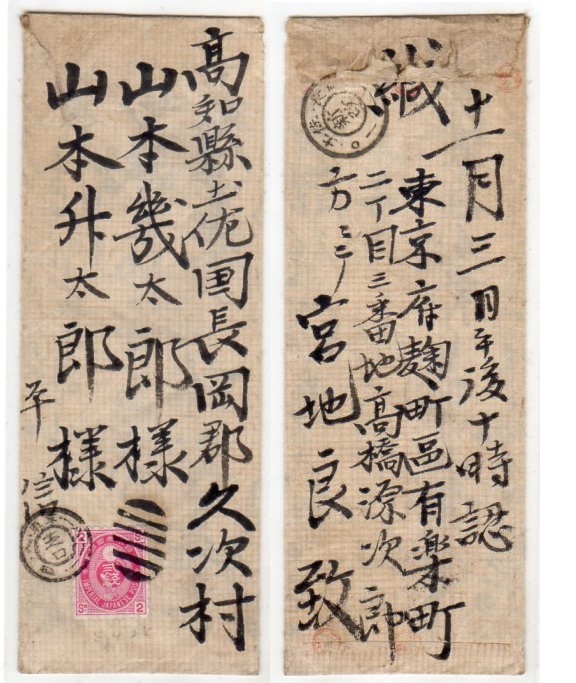 高知縣土佐国長岡郡久次村
山本幾太郎様
山本升太郎様
平信
2
IMPERIAL JAPANESE POST
緘
十一月三日午後十時認
東京府麹町區有楽町
二丁目三番地高橋源次郎
方ニテ
宮地良致